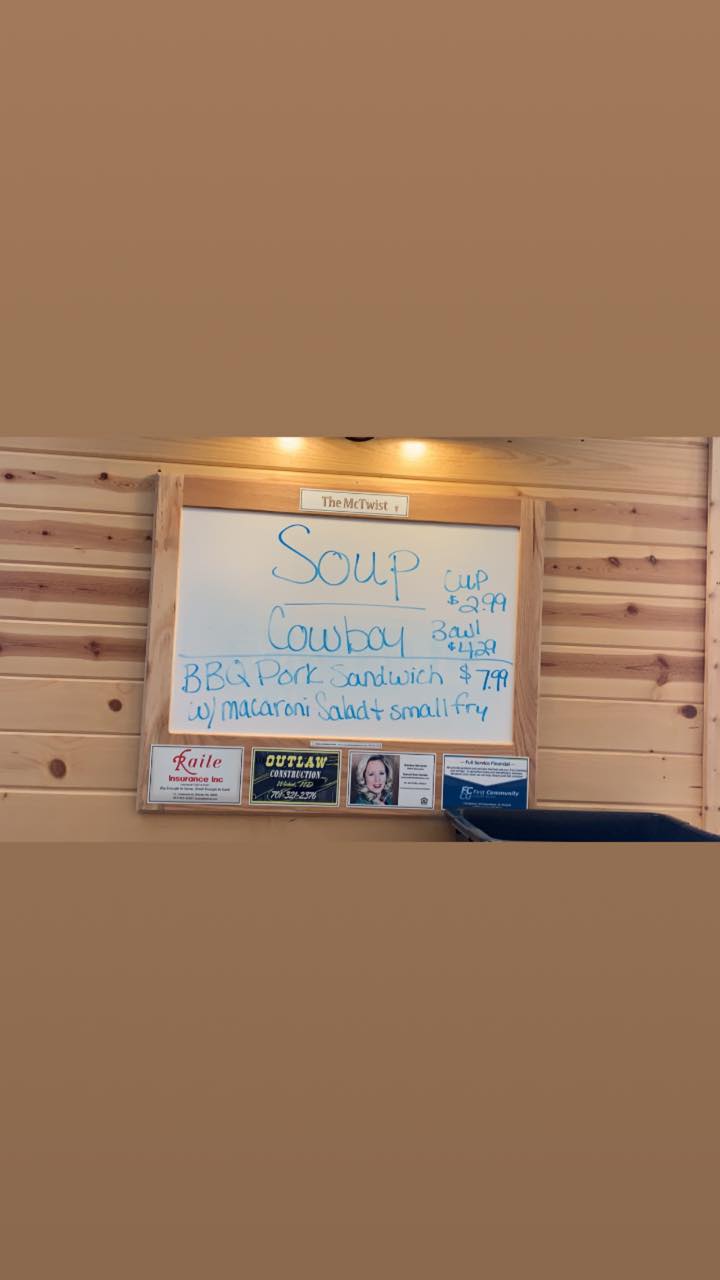 The McTwist
Soup
Cup
$2.99
Cowboy
Bowl
$4.29
BBQ Pork Sandwich $7.99
w/ macaroni Salad + small fry
Raile
Insurance Inc
OUTLAW
CONSTRUCTION
701-321-2376
Full Service Financial
First Community